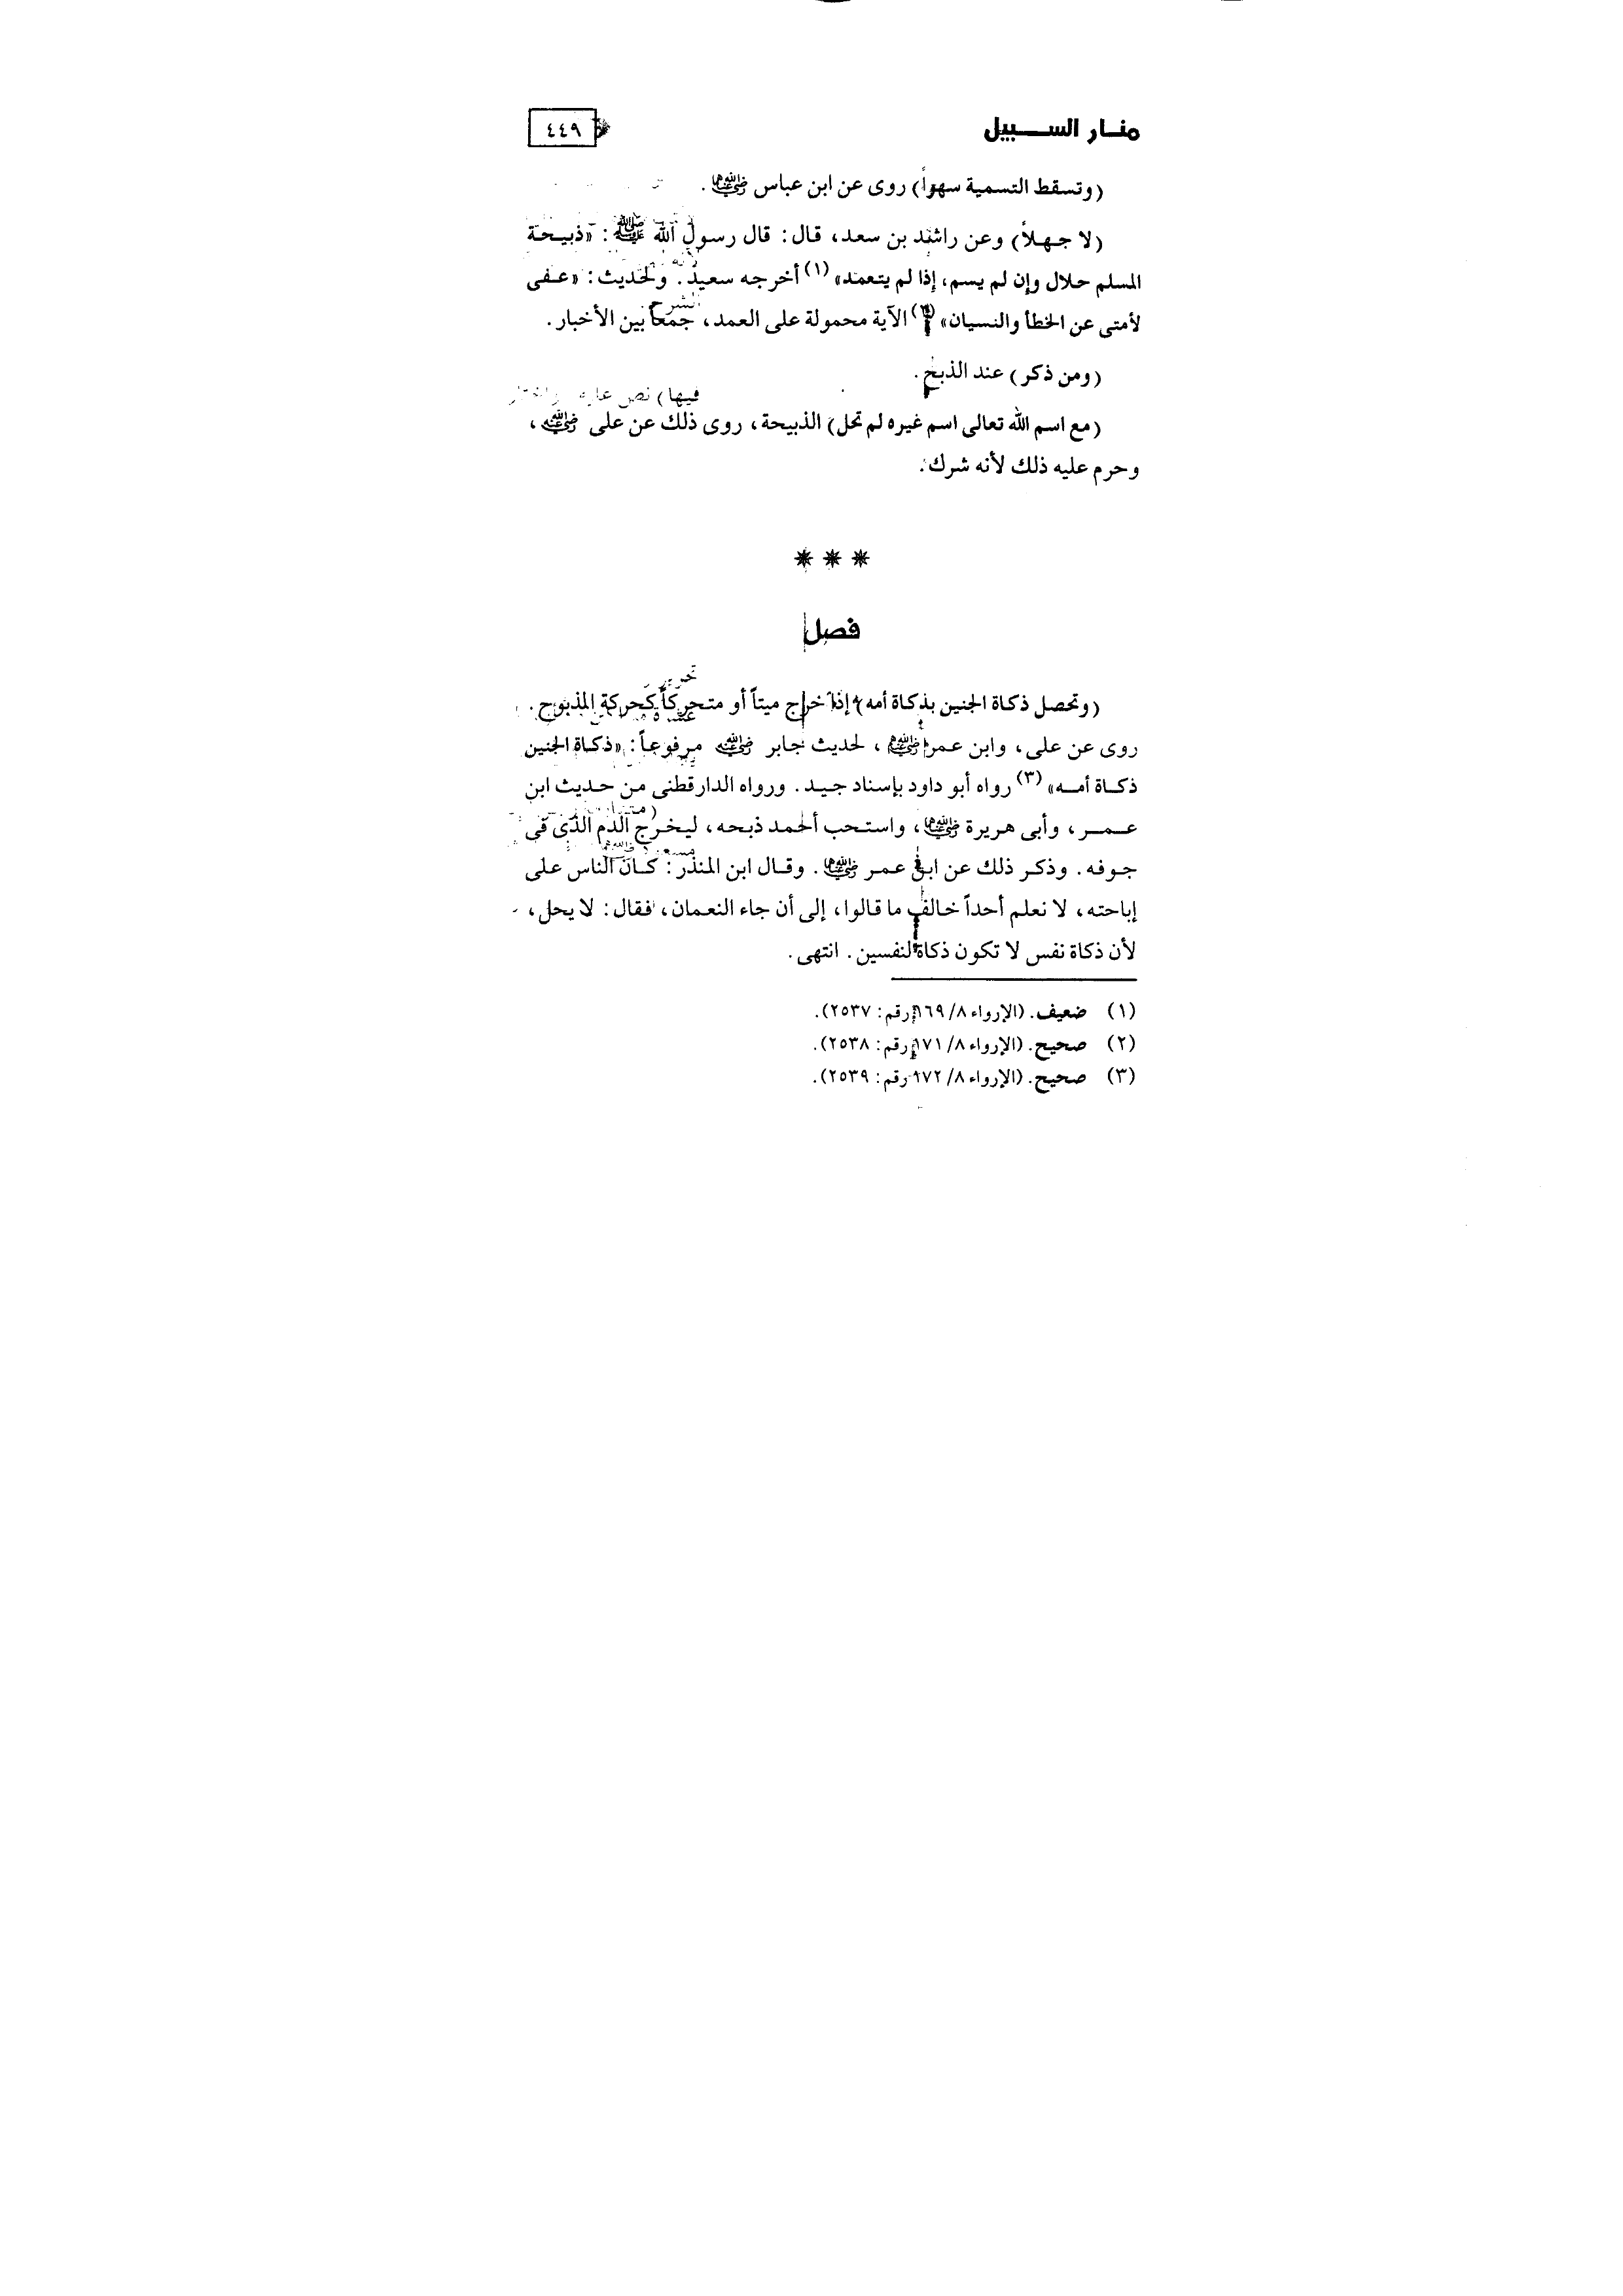 منار السبيل
٤٤٩
(وتسقط التسمية سهواً) روى عن ابن عباس رضي الله عنهما.
(لا جهلاً) وعن راشد بن سعد، قال: قال رسول الله ﷺ: «ذبيحة
المسلم حلال وإن لم يسم، إذا لم يتعمد» (١) أخرجه سعيد. ولحديث: «عفى
لأمتى عن الخطأ والنسيان» (٢) الآية محمولة على العمد، جمعاً بين الأخبار.
(ومن ذكر) عند الذبح.
(مع اسم الله تعالى اسم غيره لم تحل) الذبيحة، روى ذلك عن على رضي الله عنه،
وحرم عليه ذلك لأنه شرك.
* * *
فصل
(وتحصل ذكاة الجنين بذكاة أمه) إذا خرج ميتاً أو متحركاً كحركة المذبوح.
روى عن على، وابن عمر رضي الله عنهم، لحديث جابر رضي الله عنه مرفوعاً: «ذكاة الجنين
ذكاة أمه» (٣) رواه أبو داود بإسناد جيد. ورواه الدارقطنى من حديث ابن
عمر، وأبى هريرة رضي الله عنهما، واستحب أحمد ذبحه، ليخرج الدم الذى فى
جوفه. وذكر ذلك عن ابن عمر رضي الله عنهما. وقال ابن المنذر: كان الناس على
إباحته، لا نعلم أحداً خالف ما قالوا، إلى أن جاء النعمان، فقال: لا يحل،
لأن ذكاة نفس لا تكون ذكاة لنفسين. انتهى.
(١) ضعيف. (الإرواء ٨/ ١٦٩ رقم: ٢٥٣٧).
(٢) صحيح. (الإرواء ٨/ ١٧١ رقم: ٢٥٣٨).
(٣) صحيح. (الإرواء ٨/ ١٧٢ رقم: ٢٥٣٩).